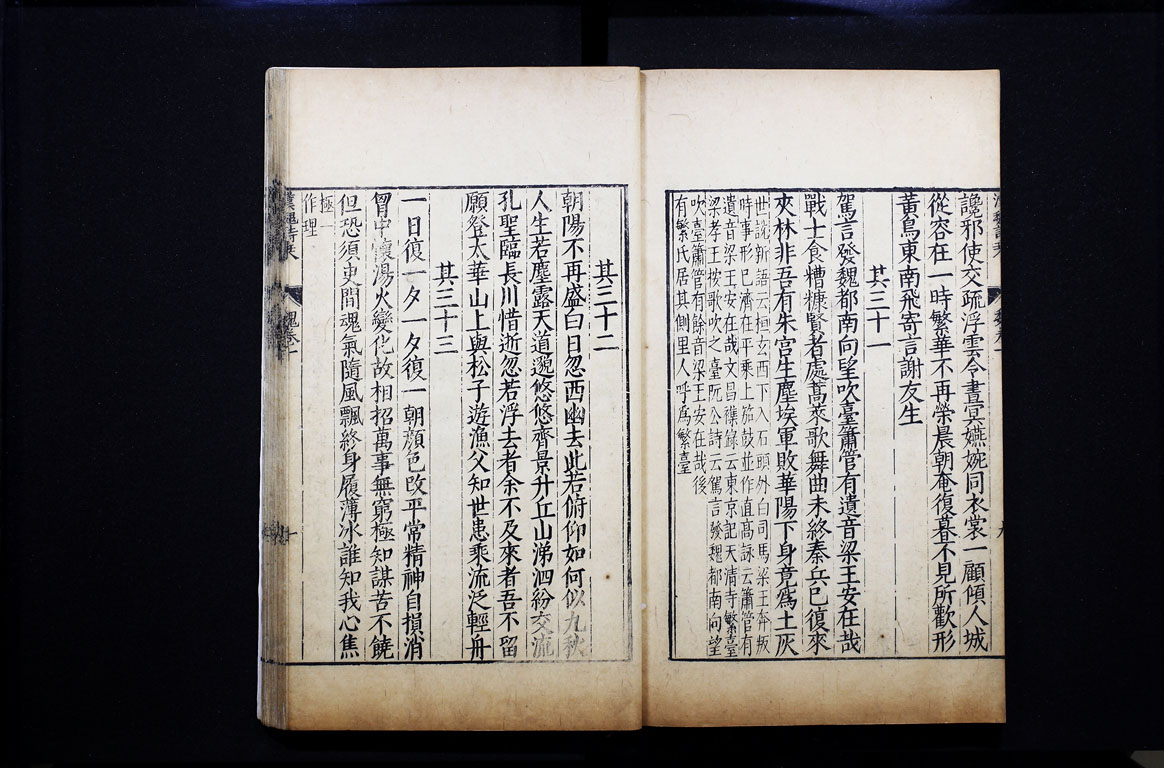 讒邪使交疏浮雲令晝冥嬿婉同衣裳一顧傾人城
從容在一時繁華不再榮晨朝奄復暮不見所歡形
黃鳥東南飛寄言謝友生
其三十一
駕言發魏都南向望吹臺簫管有遺音梁王安在哉
戰士食糟糠賢者處蒿萊歌舞曲未終秦兵已復來
夾林非吾有朱宮生塵埃軍敗華陽下身竟為土灰
世說新語云桓玄西下入石頭外白司馬梁王奔叛
時事形已濟在平乘上笳鼓並作直高詠云簫管有
遺音梁王安在哉文昌雜錄云東京記天清寺繁臺
梁孝王按歌吹之臺阮公詩云駕言發魏都南向望
吹臺簫管有餘音梁王安在哉後
有繁氏居其側里人呼爲繁臺
其三十二
朝陽不再盛白日忽西幽去此若俯仰如何似九秋
人生若塵露天道邈悠悠齊景升丘山涕泗紛交流
孔聖臨長川惜逝忽若浮去者余不及來者吾不留
願登太華山上與松子遊漁父知世患乘流泛輕舟
其三十三
一日復一夕一夕復一朝顏色改平常精神自損消
胷中懷湯火變化故相招萬事無窮極知謀苦不饒
但恐須臾間魂氣隨風飄終身履薄冰誰知我心焦
極一
作理
漢魏詩乘
魏卷一